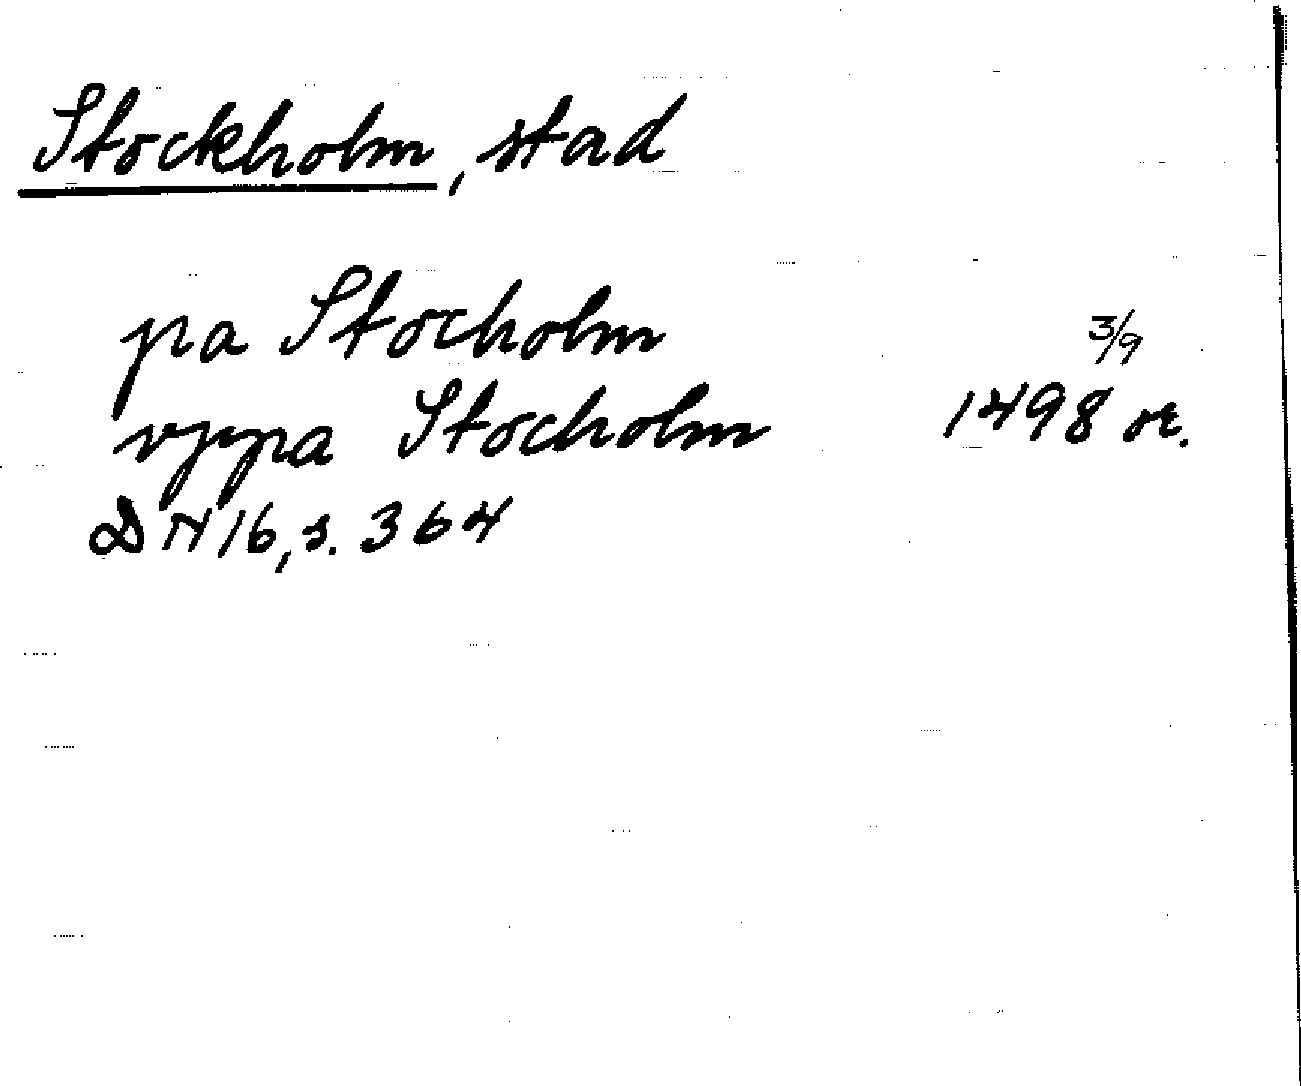 Stockholm, stad
pa Stocholm 3/9
vppa Stocholm 1498 or.
DN 16, s. 364